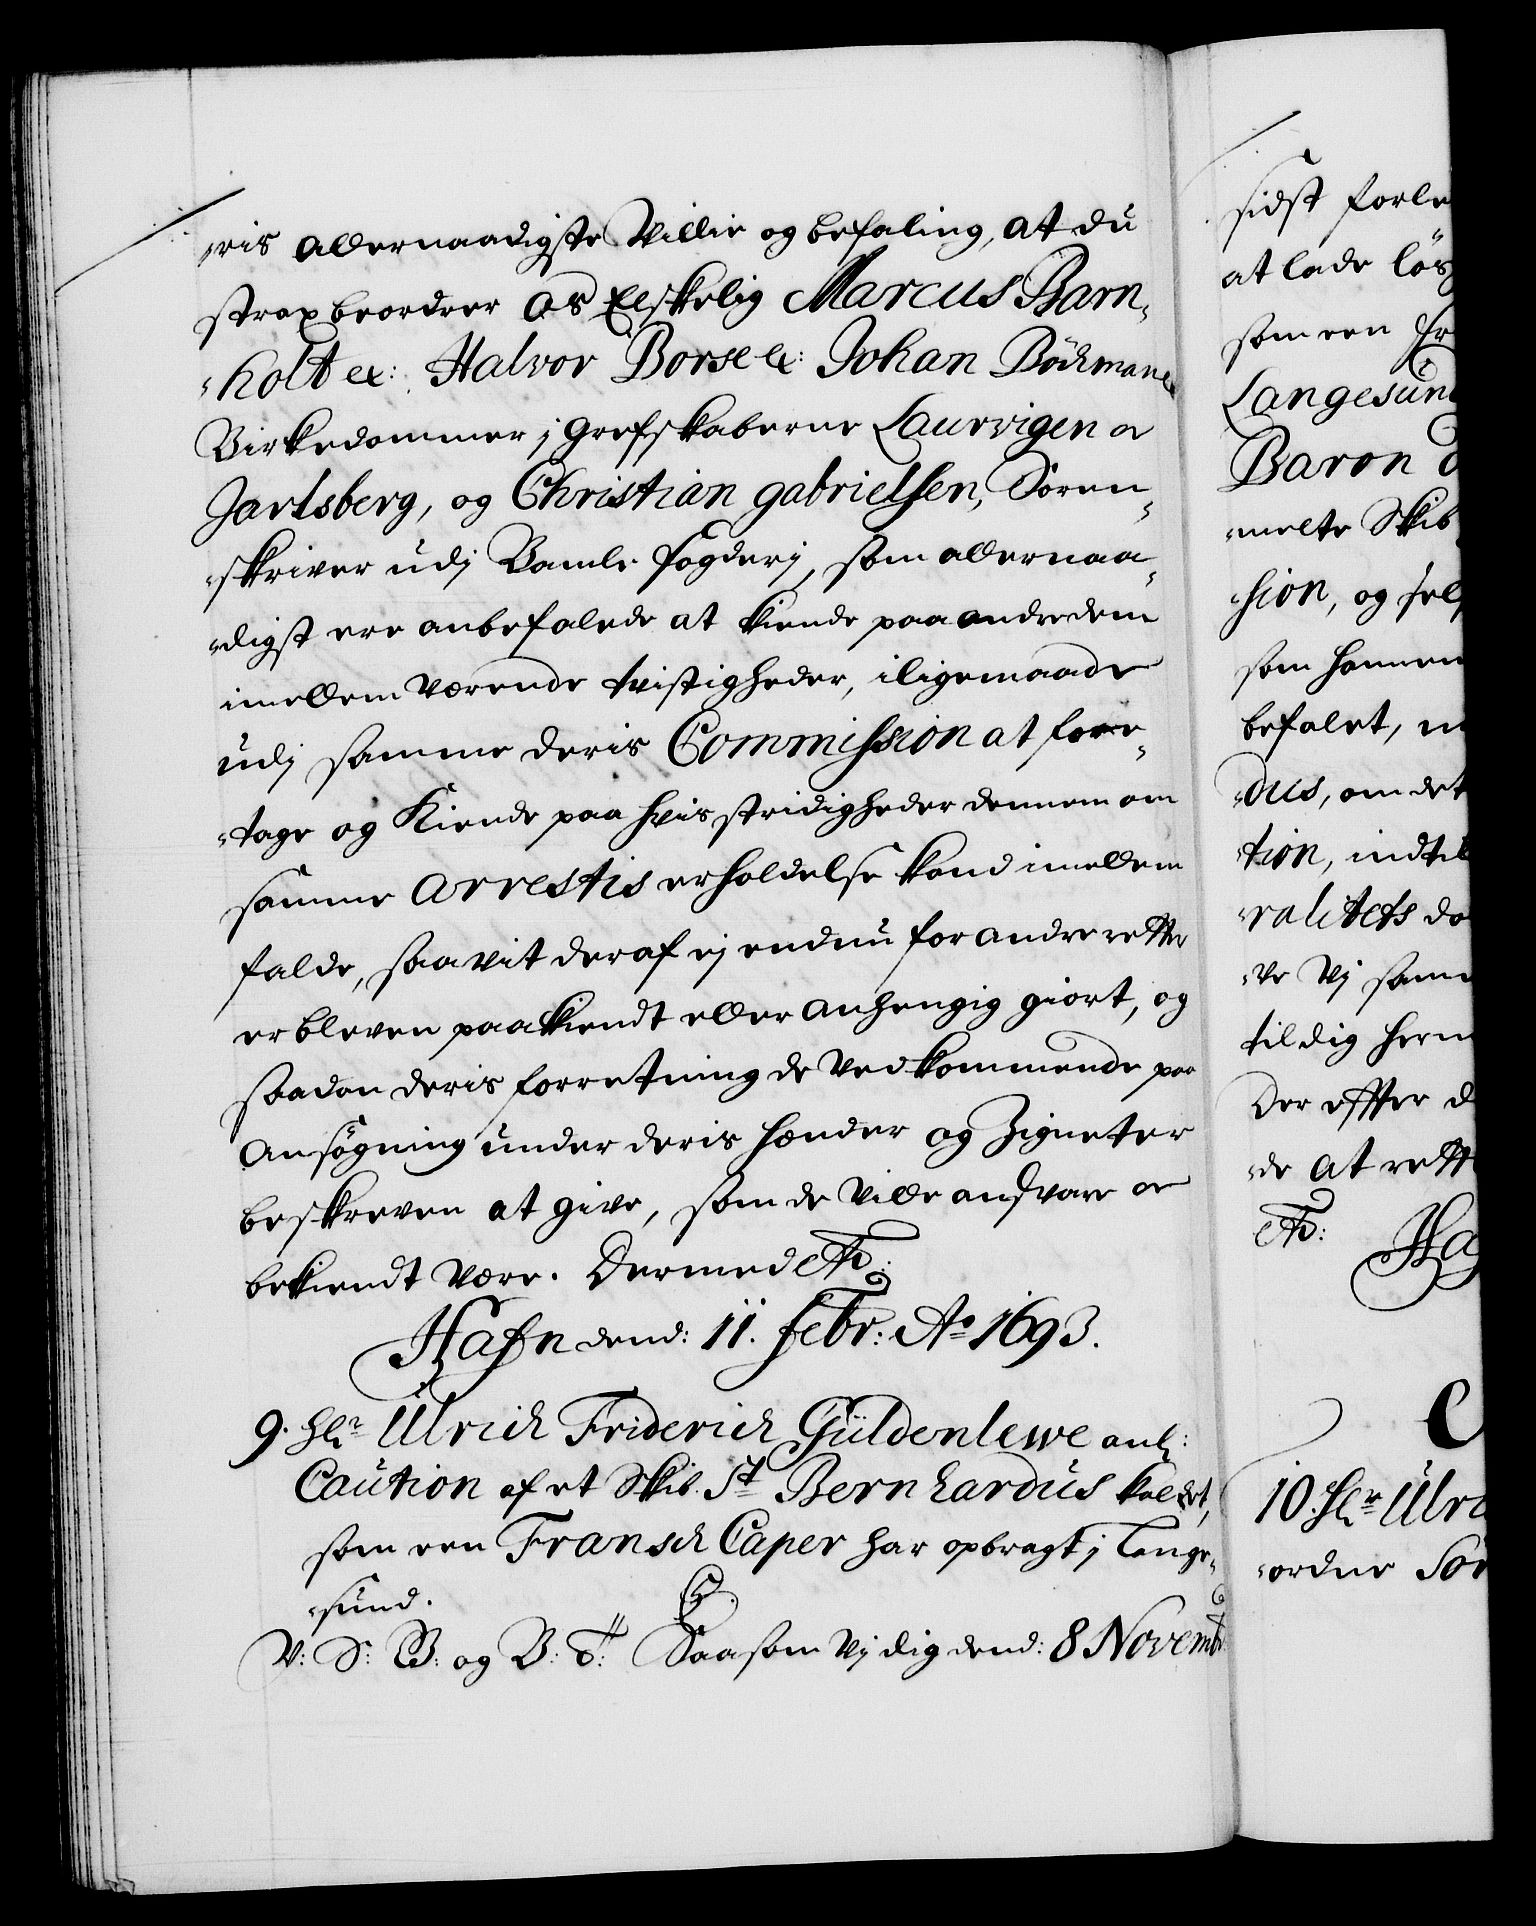 ris allernaadigste Villie og befaling, at du
strax beordrer Os Elskelig Marcus Barn-
-holt etc: Halvor Borse etc: Johan Böckmann
Birkedommer i Grefskaberne Laurvigen oc
Jarlsberg, og Christian Gabrielssen, Soren-
-skriver udj Bamle fogderj, som allernaa-
-digst ere anbefalede at kiende paa andre dem
imellem værende tvistigheder, iligemaade
udj samme deris Commission at fore-
-tage og Kiende paa hvis stridigheder dennem om
samme Arrestis erholdelse kand imellem
falde, saavit deraf ej endnu for andre retter
er bleven paakiendt eller anhengig giort, og
saadan deris forretning de vedkommende paa
Ansögning under deris hænder og Zigneter
beskreven at give, som de ville andsvare oc
bekiendt være. Dermed etc:
Hafn dend: 11. Febr: Ao 1693.
9. Hr Ulrich Friderich Güldenlewe anl:
Caution af et Skib St Bernhardus kaldet,
som een Fransch Caper har opbragt i Lange-
-sund.
C5.
V: S: B: og B: T: Saasom Vj dig dend: 8 Novembr
sidst forle
at lade lös
som een fr
Langesund
Baron
-melte Skib
-sion, og sel
som hannem
befalet,
-dus, om det
-tion, indtil
-ralitets
-ve Vj samme
til dig herm
Der effter d
-de at rett
etc: Ha
C
10. Hr Ulr
-ordne Sör